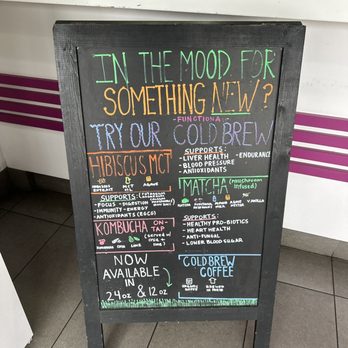 IN THE MOOD FOR
SOMETHING NEW?
- FUNCTIONAL -
TRY OUR COLD BREW
HIBISCUS MCT
HIBISCUS MCT AGAVE
OIL
SUPPORTS:
- LIVER HEALTH - ENDURANCE
- BLOOD PRESSURE
- ANTIOXIDANTS
MATCHA (mushroom
infused)
AGAVE VANILLA
SUPPORTS:
- FOCUS - DIGESTION
- IMMUNITY - ENERGY
- ANTIOXIDANTS (EGCG)
KOMBUCHA ON-
TAP
(served w/
SUPPORTS:
- HEALTHY PRO-BIOTICS
- HEART HEALTH
- ANTI-FUNGAL
- LOWER BLOOD SUGAR
NOW
AVAILABLE
IN
24oz & 12oz
COLD BREW
COFFEE